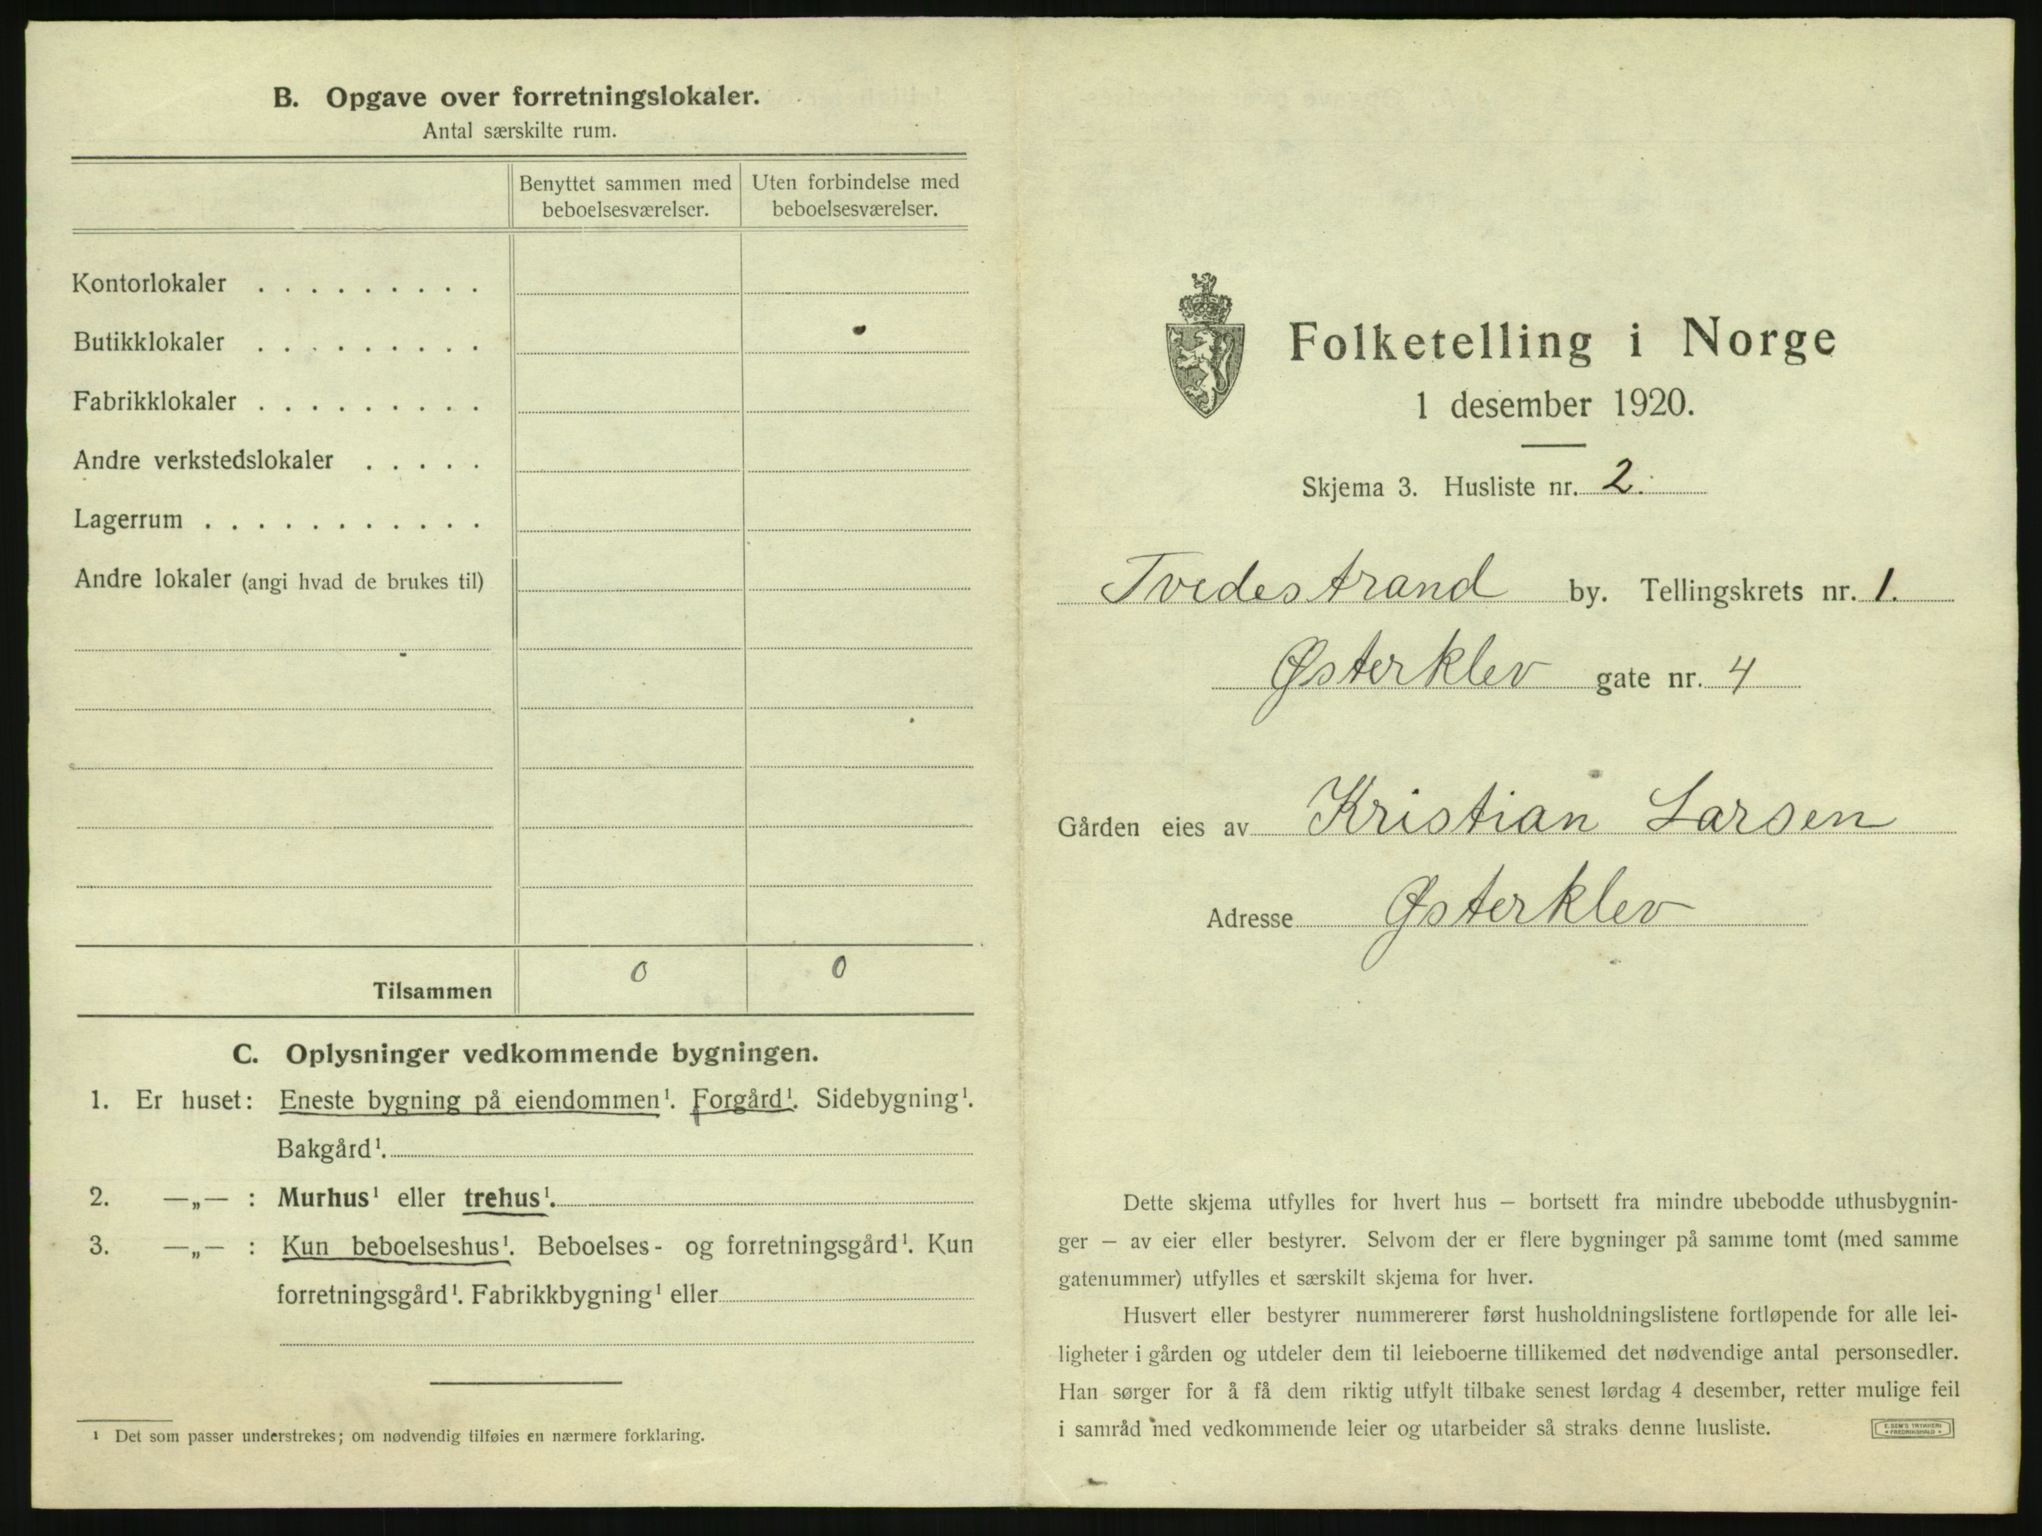 B. Opgave over forretningslokaler.
Antal særskilte rum.
Benyttet sammen med beboelsesværelser.
Uten forbindelse med beboelsesværelser.
Kontorlokaler . . . . . . . . .
Butikklokaler . . . . . . . . .
Fabrikklokaler . . . . . . . . .
Andre verkstedslokaler . . . . .
Lagerrum . . . . . . . . . . .
Andre lokaler (angi hvad de brukes til)
Tilsammen 0 0
C. Oplysninger vedkommende bygningen.
1. Er huset: Eneste bygning på eiendommen¹. Forgård¹. Sidebygning¹.
Bakgård¹.
2. —„— : Murhus¹ eller trehus¹.
3. —„— : Kun beboelseshus¹. Beboelses- og forretningsgård¹. Kun
forretningsgård¹. Fabrikkbygning¹ eller
¹ Det som passer understrekes; om nødvendig tilføies en nærmere forklaring.
Folketelling i Norge
1 desember 1920.
Skjema 3. Husliste nr. 2.
Tvedestrand by. Tellingskrets nr. 1.
Østerklev gate nr. 4
Gården eies av Kristian Larsen
Adresse Østerklev
Dette skjema utfylles for hvert hus – bortsett fra mindre ubebodde uthusbygnin-
ger – av eier eller bestyrer. Selvom der er flere bygninger på samme tomt (med samme
gatenummer) utfylles et særskilt skjema for hver.
Husvert eller bestyrer nummererer først husholdningslistene fortløpende for alle lei-
ligheter i gården og utdeler dem til leieboerne tillikemed det nødvendige antal personsedler.
Han sørger for å få dem riktig utfylt tilbake senest lørdag 4 desember, retter mulige feil
i samråd med vedkommende leier og utarbeider så straks denne husliste.
E. SEM'S TRYKKERI
• FREDRIKSHALD •